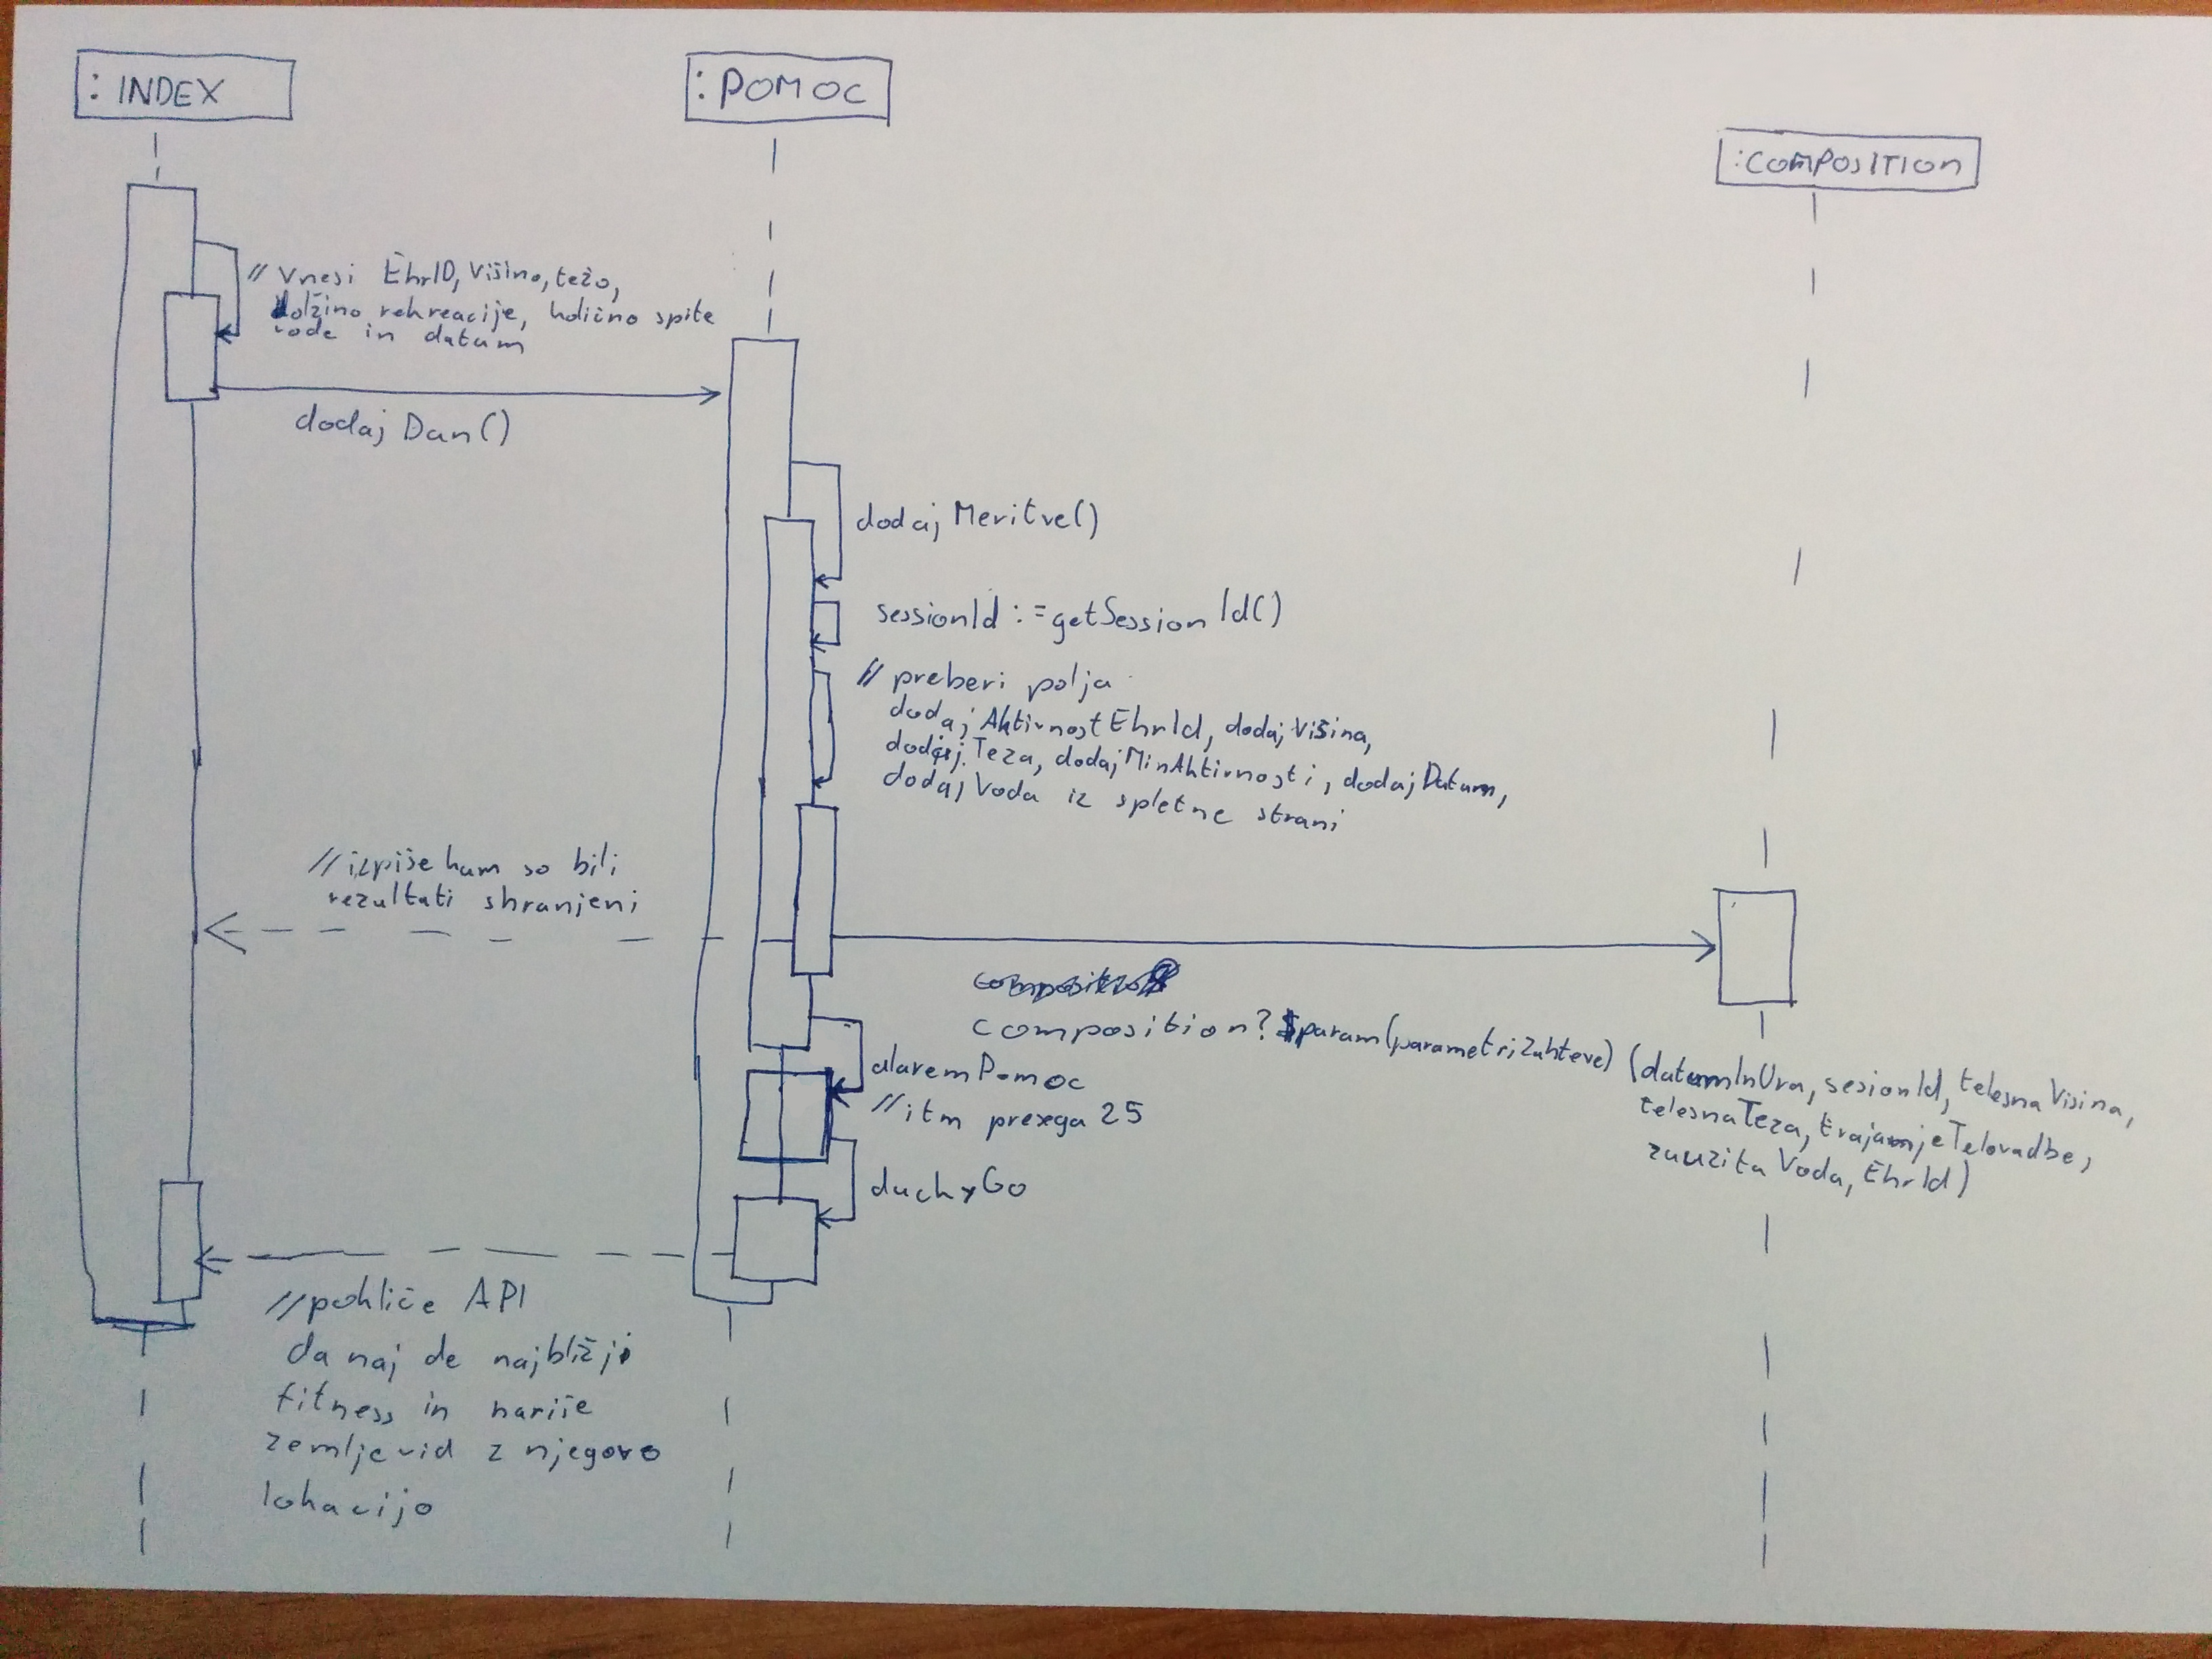 : INDEX
: POMOC
:COMPOSITION
// Vnesi EhrID, Višino, težo,
dolžino rekreacije, količino spite
vode in datum
dodaj Dan()
dodaj Meritve()
sessionId := getSession Id()
// preberi polja
dodaj AktivnostEhrId, dodaj Višina,
dodaj Teza, dodaj MinAktivnosti, dodaj Datum,
dodaj Voda iz spletne strani
// izpiše kam so bili
rezultati shranjeni
composition? $param(parametriZahteve) (datumInUra, sesionId, telesna Visina,
telesna Teza, trajamjeTelovadbe,
zauzita Voda, EhrId)
alarem Pomoc
// itm prexega 25
duckyGo
// pokliče API
da naj de najbližji
fitness in nariše
zemljevid z njegovo
lokacijo